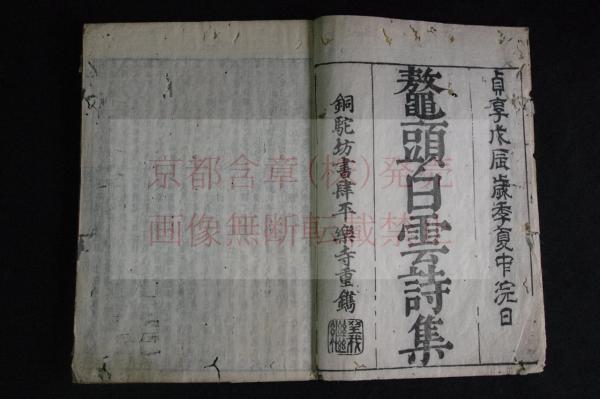 貞享戊辰歳季夏中浣日
鼇頭白雲詩集
銅駝坊書肆平樂寺重鐫
京都含章(株)発売
画像無断転載禁止